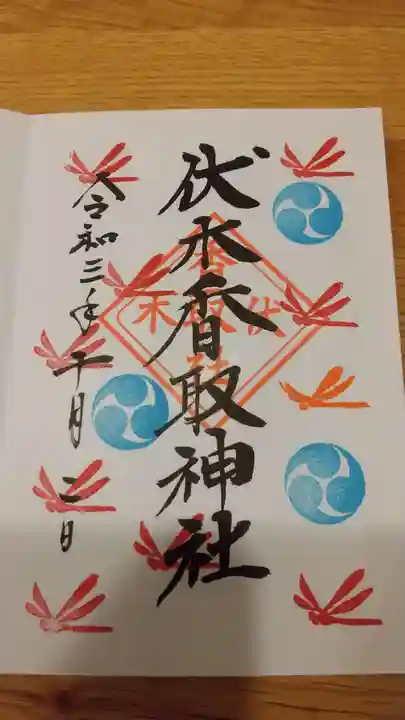 伏木香取神社
令和三年十月二日
伏木
香取